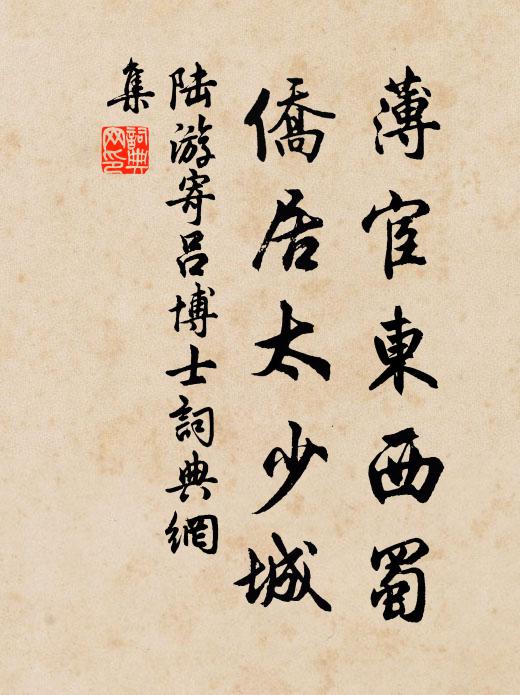 薄宦東西蜀
僑居太少城
陸游寄呂博士詞典網
集
詞典
网印